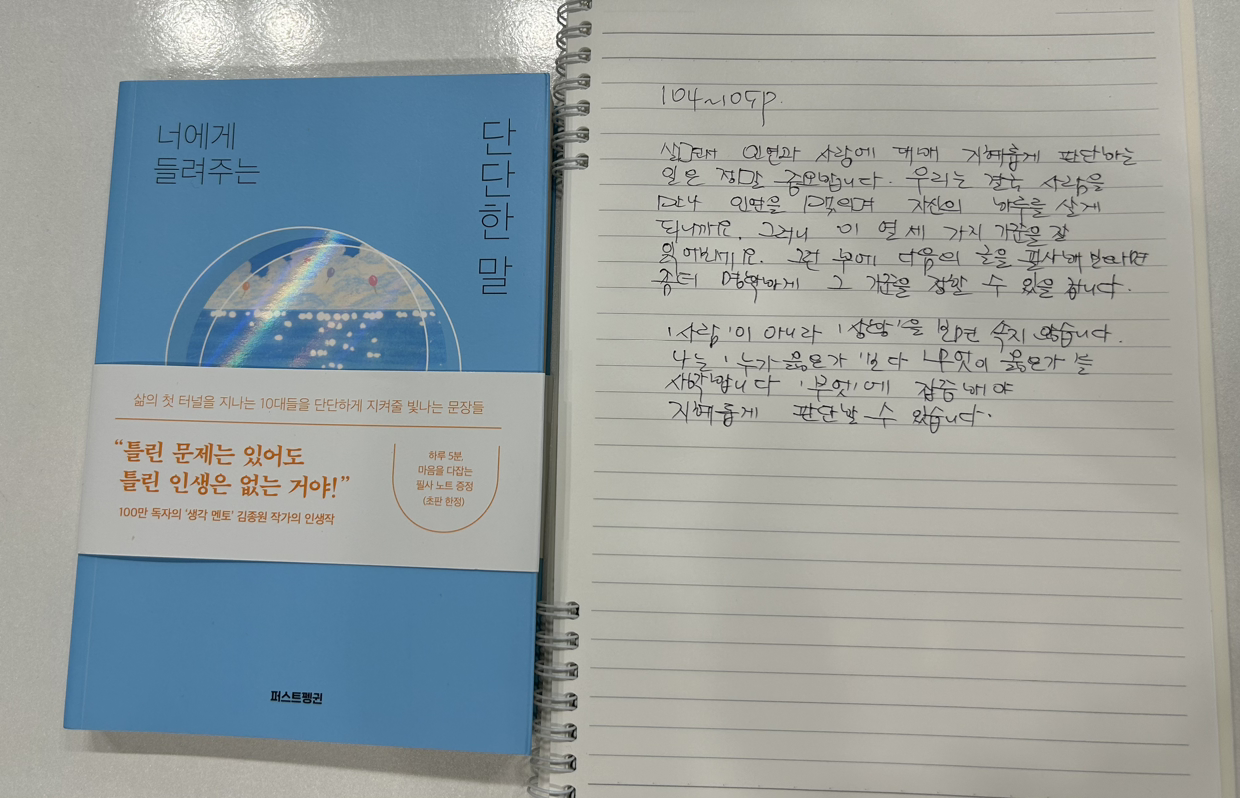 너에게
들려주는
단단한 말
삶의 첫 터널을 지나는 10대들을 단단하게 지켜줄 빛나는 문장들
“틀린 문제는 있어도
틀린 인생은 없는 거야!”
100만 독자의 '생각 멘토' 김종원 작가의 인생작
하루 5분,
마음을 다잡는
필사 노트 증정
(초판 한정)
퍼스트펭귄
104~105p.
살면서 인연과 사람에 대해 지혜롭게 판단하는
일은 정말 중요합니다. 우리는 결국 사람을
만나 인연을 맺으며 자신의 하루를 살게
되니까요. 그러니 이 열 세 가지 기준을 잘
읽어보세요. 그런 후에 다음의 글을 필사해 본다면
좀더 명확하게 그 기준을 정할 수 있을 겁니다.
'사람'이 아니라 '상황'을 보면 속지 않습니다.
나는 '누가 옳은가'보다 '무엇이 옳은가'를
생각합니다 '무엇'에 집중해야
지혜롭게 판단할 수 있습니다.